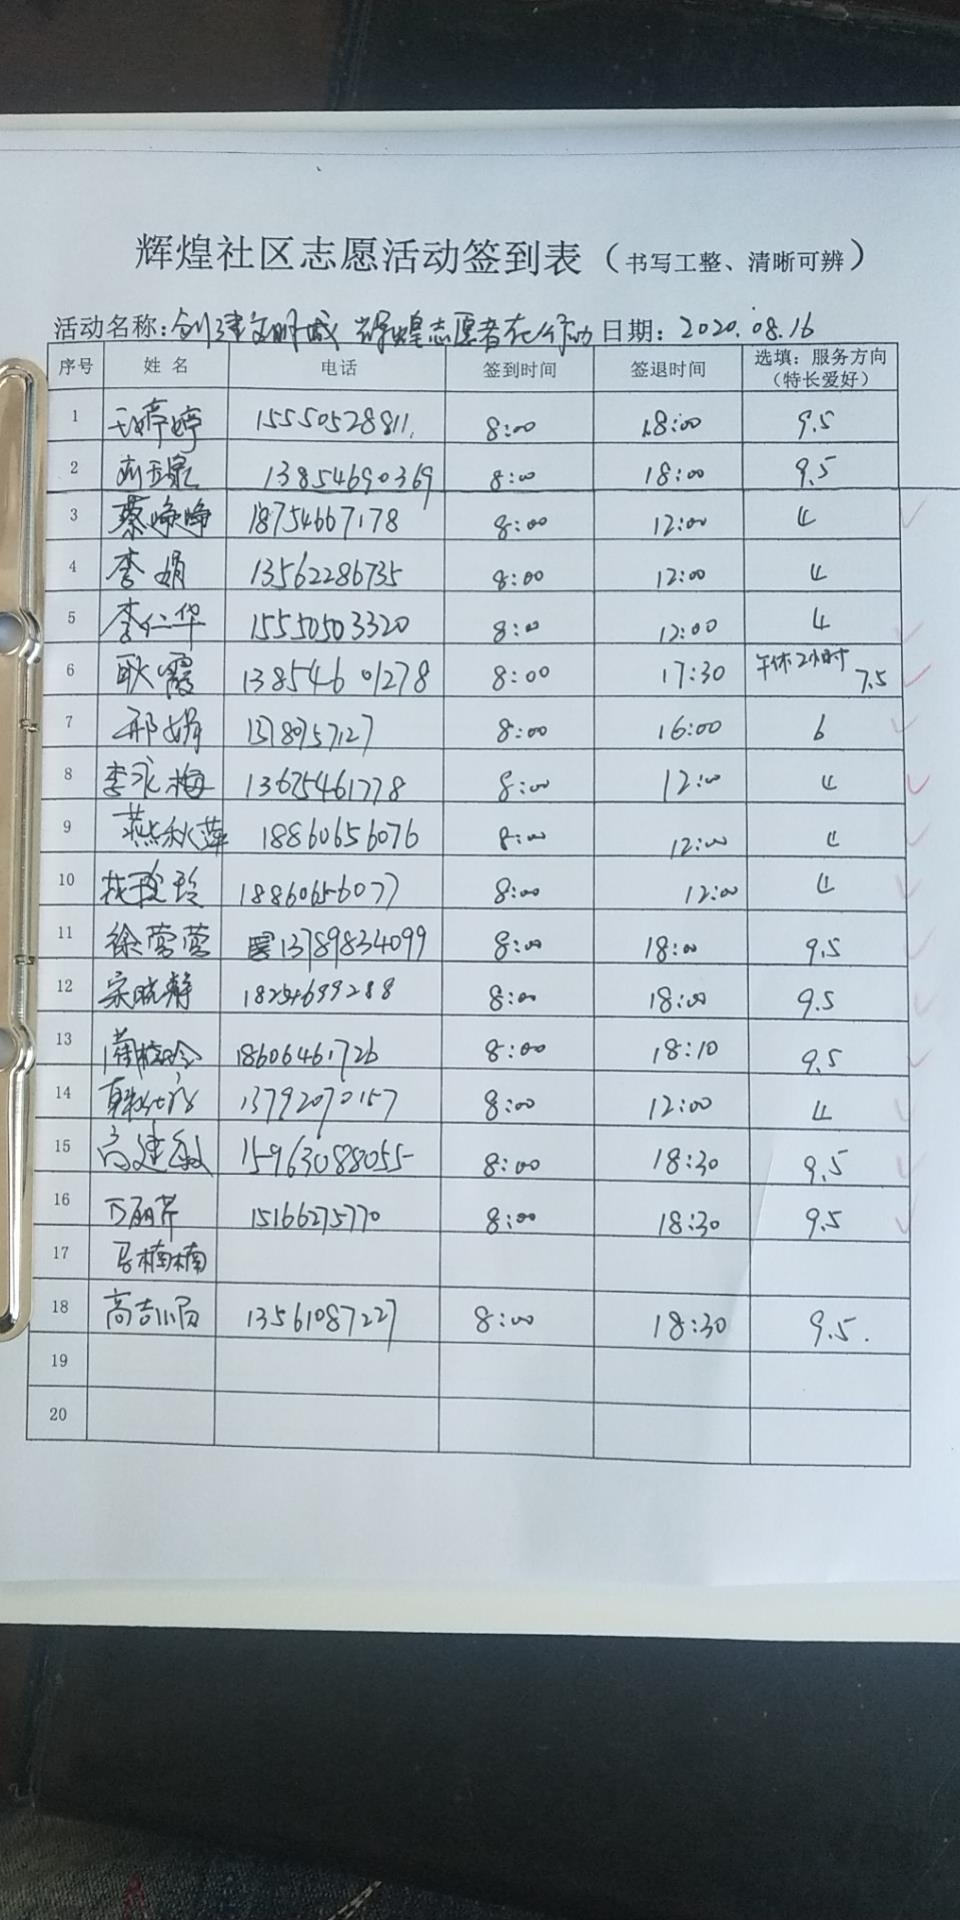 辉煌社区志愿活动签到表（书写工整、清晰可辨）
活动名称：创建文明城 辉煌志愿者在行动 日期：2020.08.16
序号 姓 名 电话 签到时间 签退时间 选填：服务方向（特长爱好）
1 婷婷 15550528811. 8:00 18:00 9.5
2 13854690369 8:00 18:00 9.5
3 蔡峥峥 18754667178 8:00 12:00 4
4 李娟 13562286735 8:00 12:00 4
5 李仁华 15550503320 8:00 12:00 4
6 耿霞 13854601278 8:00 17:30 午休2小时 7.5
7 邢娟 8:00 16:00 6
8 李永梅 13675461778 8:00 12:00 4
9 燕秋萍 18860656076 8:00 12:00 4
10 18860656077 8:00 12:00 4
11 徐莹莹 13789834099 8:00 18:00 9.5
12 宋晓静 8:00 18:00 9.5
13 18606461726 8:00 18:10 9.5
14 13792070157 8:00 12:00 4
15 高建敏 15963088055 8:00 18:30 9.5
16 万丽芹 15166275770 8:00 18:30 9.5
17 马楠楠
18 高吉 13561087227 8:00 18:30 9.5.
19
20